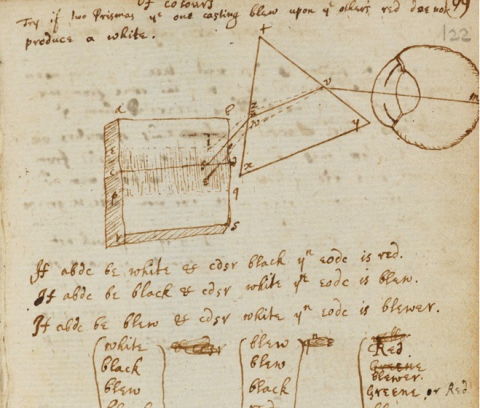 Of colours
99
Try if two Prismas yᵉ one casting blew upon yᵉ others red doe not
produce a white.
122
If abdc be white & cdsr black yⁿ eodc is red.
If abdc be black & cdsr white yⁿ eodc is blew.
If abdc be blew & cdsr white yⁿ eodc is blewer.
white blew Red
black blew Greene
blewer
blew black Greene or Red